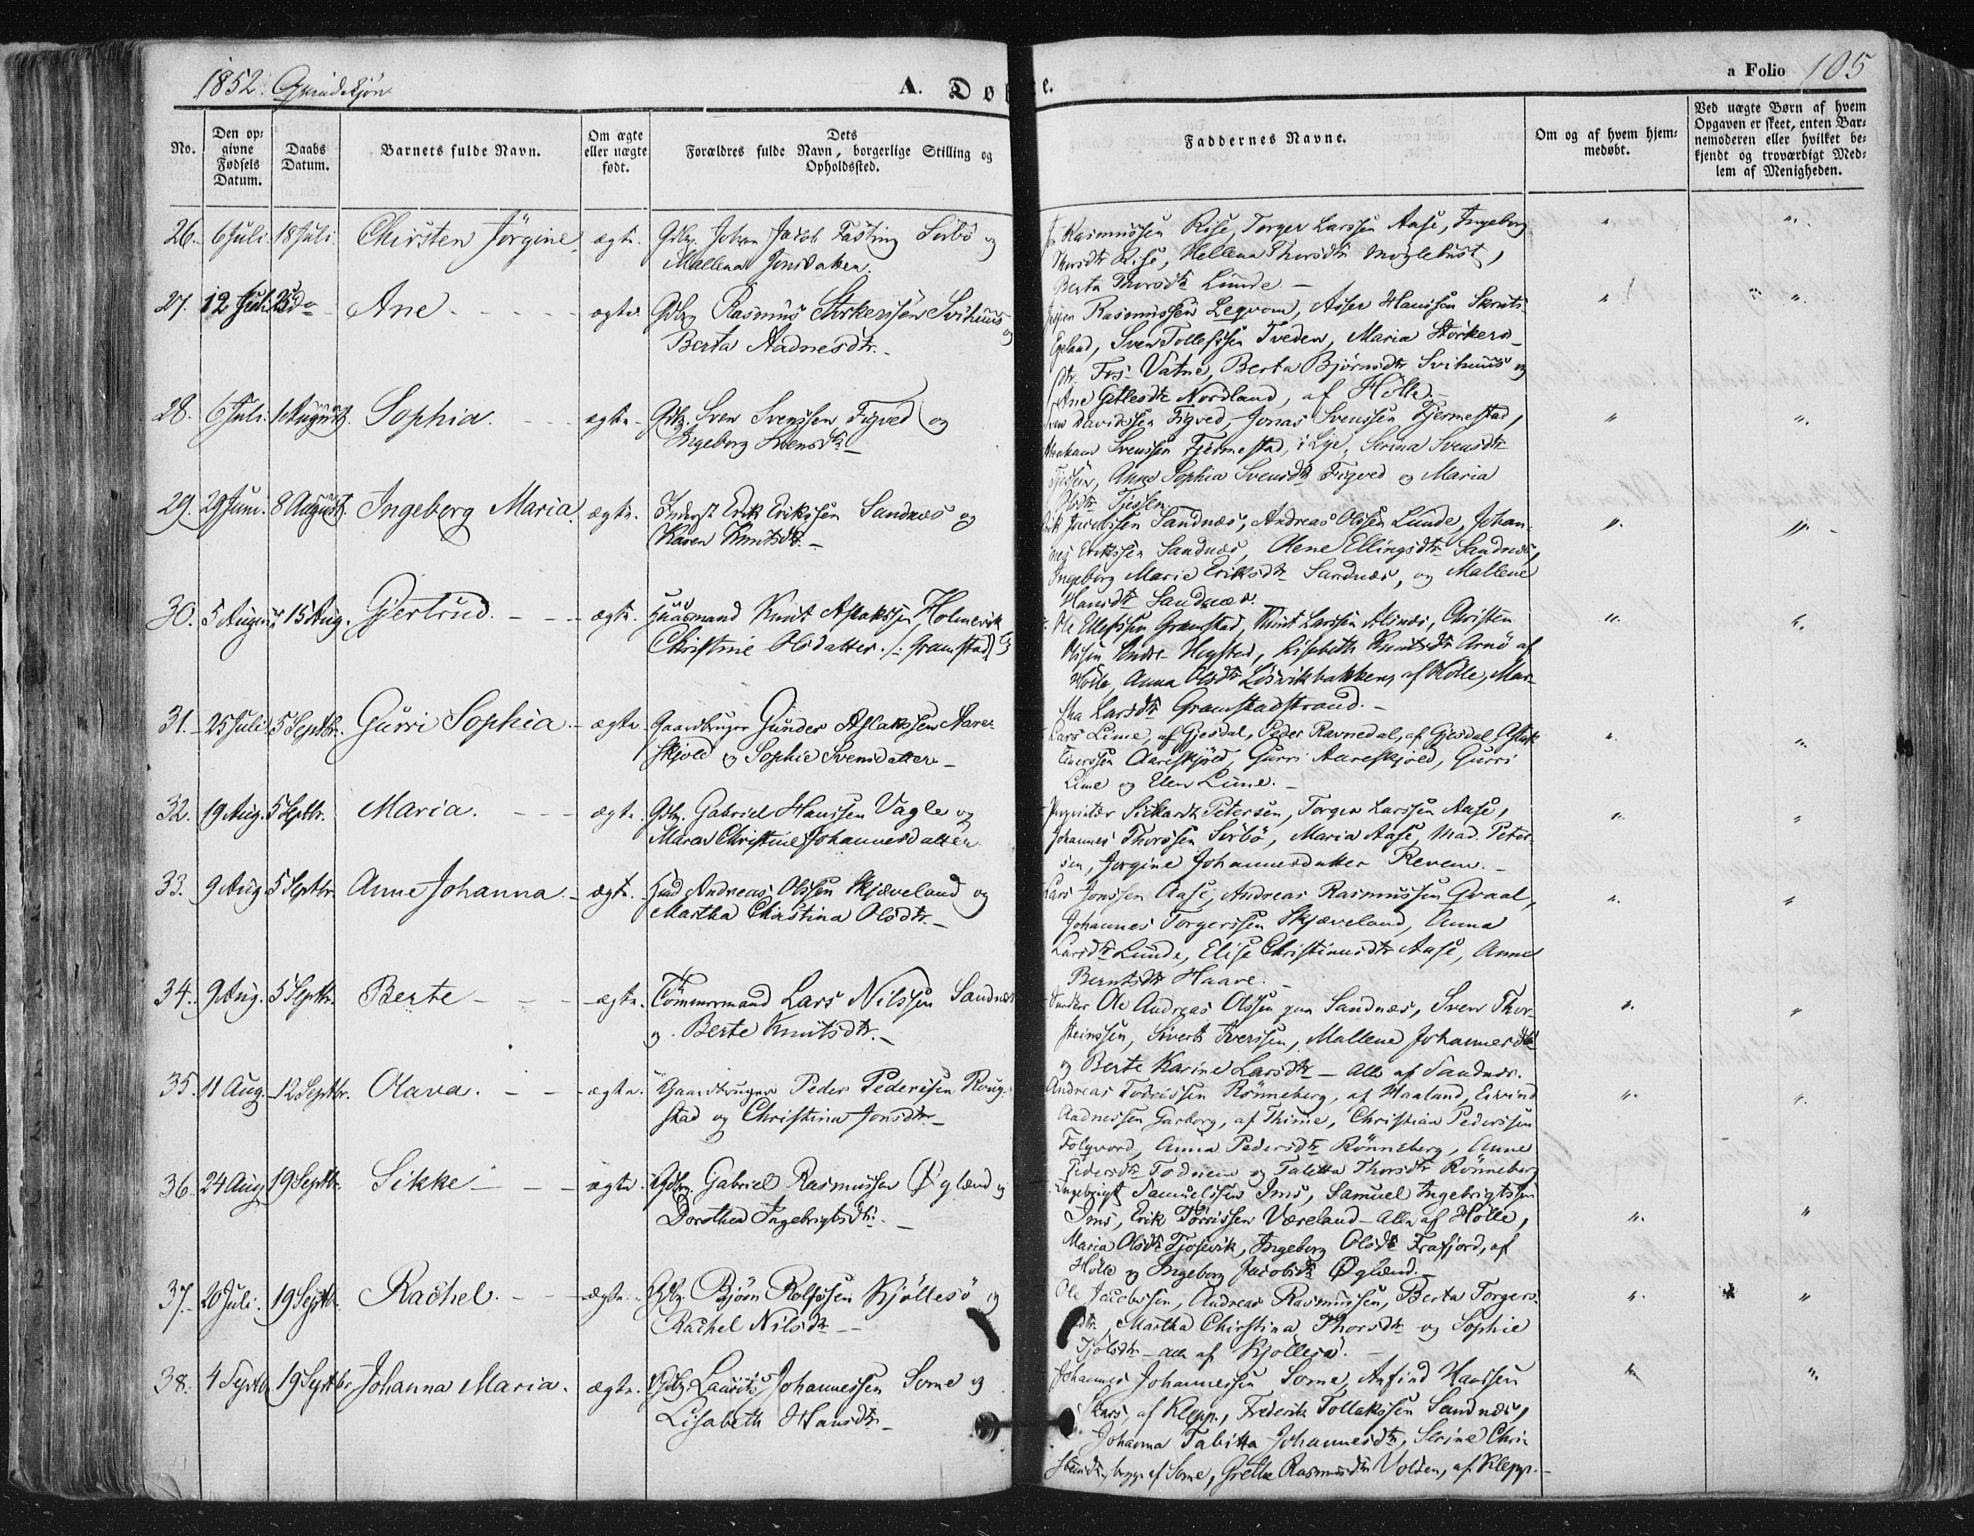 1852. Qvindekjøn
A. Døbte.
a Folio 105
No.
Den op-
givne
Fødsels
Datum.
Daabs
Datum.
Barnets fulde Navn.
Om ægte
eller uægte
født.
Dets
Forældres fulde Navn, borgerlige Stilling og
Opholdssted.
Faddernes Navne.
Om og af hvem hjem-
medøbt.
Ved uægte Børn af hvem
Opgaven er skeet, enten Bar-
nemoderen eller hvilket be-
kjendt og troværdigt Med-
lem af Menigheden.
26. 6 Juli. 18 Juli. Chirsten Jörgine. ægte. Gdbr. Johan Jacob Fasting Sorbö og
Mallena Jonsdatter.
Rasmussen Rise, Torger Larssen Aase, Ingeborg
Thorsdtr Rise, Hellena Thorsdtr Moglebust,
Berta Thorsdtr Lunde –
27. 12 Juli. Ane ægte. Gdbr. Rasmus Storkerssen Svihuus og
Berta Aadnesdtr. –
Rasmussen Leqvam, Asser Hanssen Skrut-
Egeland, Sven Tollefssen Tveden, Maria Storkers-
dtr. Fos-Vatne, Berta Bjørnsdtr Svihuus og
Ane Gitlesdtr Nordland, af Holle. –
28. 6 Juli. 1 August. Sophia. ægte. Gdbr. Sven Svenssen Figved og
Ingeborg
Davidssen Figved, Jonas Svenssen Fjermestad,
Abraham Svenssen Fjermestad, i Lye, Serina Svensdtr
Anne Sophia Svensdtr Figved og Maria
Olsdtr Tjessen
29. 29 Juni. 8 August. Ingeborg Maria. ægte. Inderst Erik Erikssen Sandnæs og
Karen Knutsdtr. –
Sandnæs, Andreas Olssen Lunde, Johan-
nes Erikssen Sandnæs, Olene Ellingsdtr Sandnæs,
Ingeborg Marie Eriksdtr Sandnæs, og Mallene
Hansdtr Sandnæs. –
30. 5 August 15 Aug. Gjertrud. ægte. Huusmand Knut Aslakssen Holmevik og
Christine Olsdatter. /: Gramstad :/
Ole Ellefssen Gramstad, Knut Larssen Alsnæs, Christen
Olssen Hogstad, Lisebeth Knutsdtr Arnö af
Holle, Anna Olsdtr Lösvikbakken, af Holle, Mar-
tha Larsdtr Gramstadstrand. –
31. 25 Juli 5 Septbr. Gurri Sophia. ægte. Gaardbruger Gunder Aslakssen Aare-
skjold og Sophie Svensdatter –
Lars Lime, af Gjesdal, Peder Ravnedal, af Gjesdal, Aslak
Einerssen Aareskjold, Gurri Aareskjold, Gurri
Lime og Elen Lime. –
32. 19 Aug. 5 Septbr. Maria. ægte. Gdbr. Gabriel Hanssen Vagle og
Maren Christine Johannesdatter
Proprietær Sickardt Petersen, Torger Larssen Aase,
Johannes Thorssen Sorbö, Maria Aase, Mad. Peter-
sen, Jorgine Johannesdatter Reven. –
33. 9 Aug 5 Septbr. Anne Johanna ægte. Hmd. Andreas Olssen Skjæveland og
Martha Christina Olsdtr. –
Lars Jonssen Aase, Andreas Rasmussen Qvaal,
Johannes Torgerssen Skjæveland, Anna
Larsdtr Lunde, Elise Christiansdtr Aase, Anne
Berntsdtr Haave. –
34. 9 Aug. 5 Septbr. Berte ægte. Tömmermand Lars Nilssen Sandnæs
og Berte Knutsdtr. –
Ole Andreas Olssen paa Sandnæs, Sven Thor-
steinssen, Sivert Iverssen, Mallene Johannesdtr
og Berte Karine Larsdtr – alle af Sandnæs.
35. 11 Aug. 12 Septbr. Olava. ægte. Gaardbruger Peder Pederssen Roug-
stad og Christina Jonsdtr. –
Andreas Torrissen Rönneberg, af Haaland, Eivind
Aadnessen Garborg, af Thime, Christian Pederssen
Folgvord, Anna Pedersdtr Rönneberg, Anne
Pedersdtr Todnem og Talitta Thorsdtr Rönneberg
36. 24 Aug 19 Septbr. Sikke ægte. Gdbr. Gabriel Rasmussen Øglænd og
Dorothea Ingebrigtsdtr. –
Ingebrigt Samuelssen Ims, Samuel Ingebrigtssen
Ims, Erik Tørrissen Væreland – alle af Holle,
Maria Olsdtr Tjosevik, Ingeborg Olsdtr Frafjord, af
Holle og Ingeborg Jacobsdtr Øglænd. –
37. 20 Juli. 19 Septbr. Rachel. ægte. Gdbr. Bjørn Rolfssen Kjöllesö og
Rachel Nilsdtr –
Ole Jacobssen, Andreas Rasmussen, Berta Torgers-
dtr. Martha Chirstina Thorsdtr og Sophie
– alle af Kjöllesö. –
38. 4 Septbr. 19 Septbr Johanna Maria. ægte. Gdbr. Laurits Johannessen Some og
Lisabeth Hansdtr. –
Johannes Johannessen Some, Anfind Hanssen
Skars, af Klepp, Frederik Tollakssen Sandnæs,
Johanna Tabitta Johannesdtr, Serine Chri-
stiansdtr, begge af Some, Grethe Rasmusdtr Volden, af Klepp. –